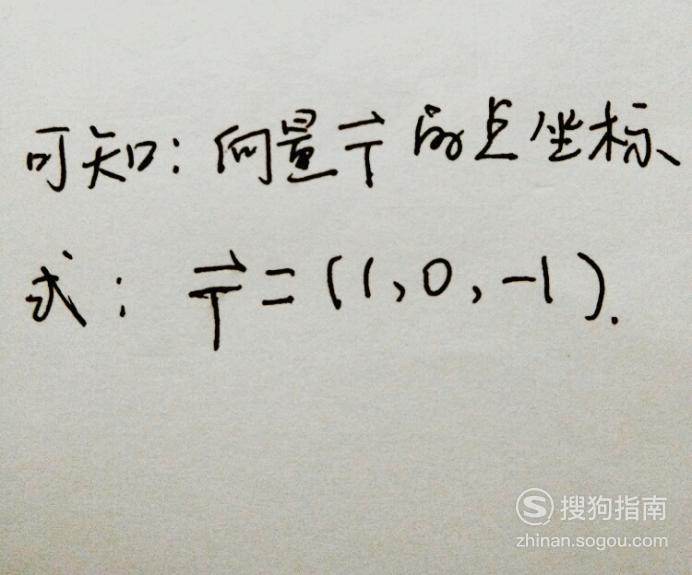 可知：向量T⃗的点坐标
式：T⃗=(1,0,-1).
搜狗指南
zhinan.sogou.com